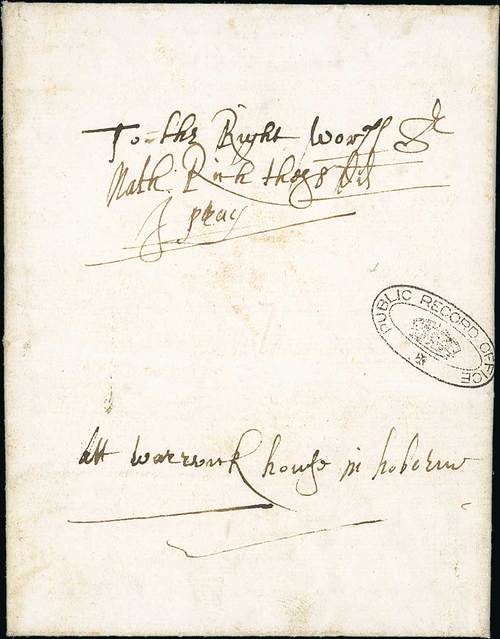 To the Right worll Sr
Nath. Rich thes dd
I pray
PUBLIC RECORD OFFICE
att warwick house in holborne